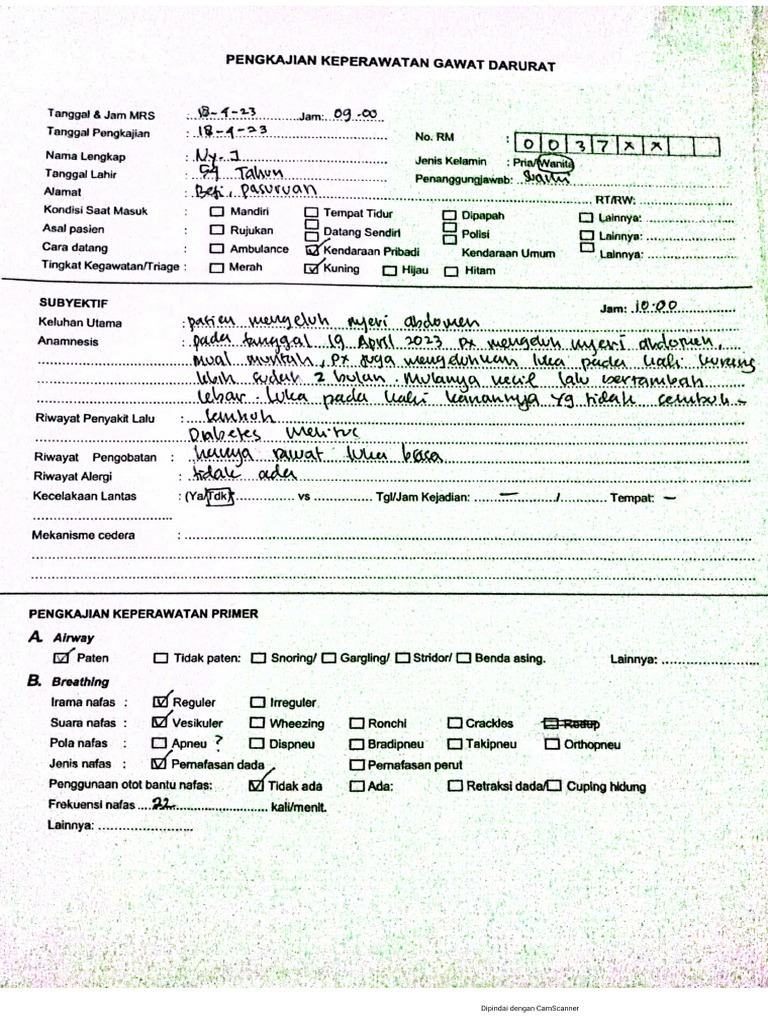 PENGKAJIAN KEPERAWATAN GAWAT DARURAT
Tanggal & Jam MRS : 18-4-23 Jam: 09.00
Tanggal Pengkajian : 18-4-23
No. RM : 0 0 3 7 x x
Nama Lengkap : Ny. J
Jenis Kelamin : Pria/Wanita
Tanggal Lahir : 54 Tahun
Penanggungjawab: Suami
Alamat : Beji, pasuruan RT/RW:
Kondisi Saat Masuk : ☐ Mandiri ☐ Tempat Tidur ☐ Dipapah ☐ Lainnya:
Asal pasien : ☐ Rujukan ☐ Datang Sendiri ☐ Polisi ☐ Lainnya:
Cara datang : ☐ Ambulance ☑ Kendaraan Pribadi Kendaraan Umum ☐ Lainnya:
Tingkat Kegawatan/Triage : ☐ Merah ☑ Kuning ☐ Hijau ☐ Hitam
SUBYEKTIF Jam: 10.00
Keluhan Utama : pasien mengeluh nyeri abdomen
Anamnesis : pada tanggal 19 April 2023 px mengeluh nyeri abdomen,
mual muntah, px juga mengeluhkan luka pada kaki kurang
lebih sudah 2 bulan. Mulanya kecil lalu bertambah
lebar. luka pada kaki kanannya yg tidak sembuh -
Riwayat Penyakit Lalu : sembuh
Diabetes Melitus
Riwayat Pengobatan : hanya rawat luka biasa
Riwayat Alergi : tidak ada
Kecelakaan Lantas : (Ya/Tdk) vs Tgl/Jam Kejadian: – / Tempat: –
Mekanisme cedera :
PENGKAJIAN KEPERAWATAN PRIMER
A. Airway
☑ Paten ☐ Tidak paten: ☐ Snoring/ ☐ Gargling/ ☐ Stridor/ ☐ Benda asing. Lainnya:
B. Breathing
Irama nafas : ☑ Reguler ☐ Irreguler
Suara nafas : ☑ Vesikuler ☐ Wheezing ☐ Ronchi ☐ Crackles ☐ Redup
Pola nafas : ☐ Apneu ? ☐ Dispneu ☐ Bradipneu ☐ Takipneu ☐ Orthopneu
Jenis nafas : ☑ Pernafasan dada ☐ Pernafasan perut
Penggunaan otot bantu nafas: ☑ Tidak ada ☐ Ada: ☐ Retraksi dada/☐ Cuping hidung
Frekuensi nafas 22 kali/menit.
Lainnya:
Dipindai dengan CamScanner